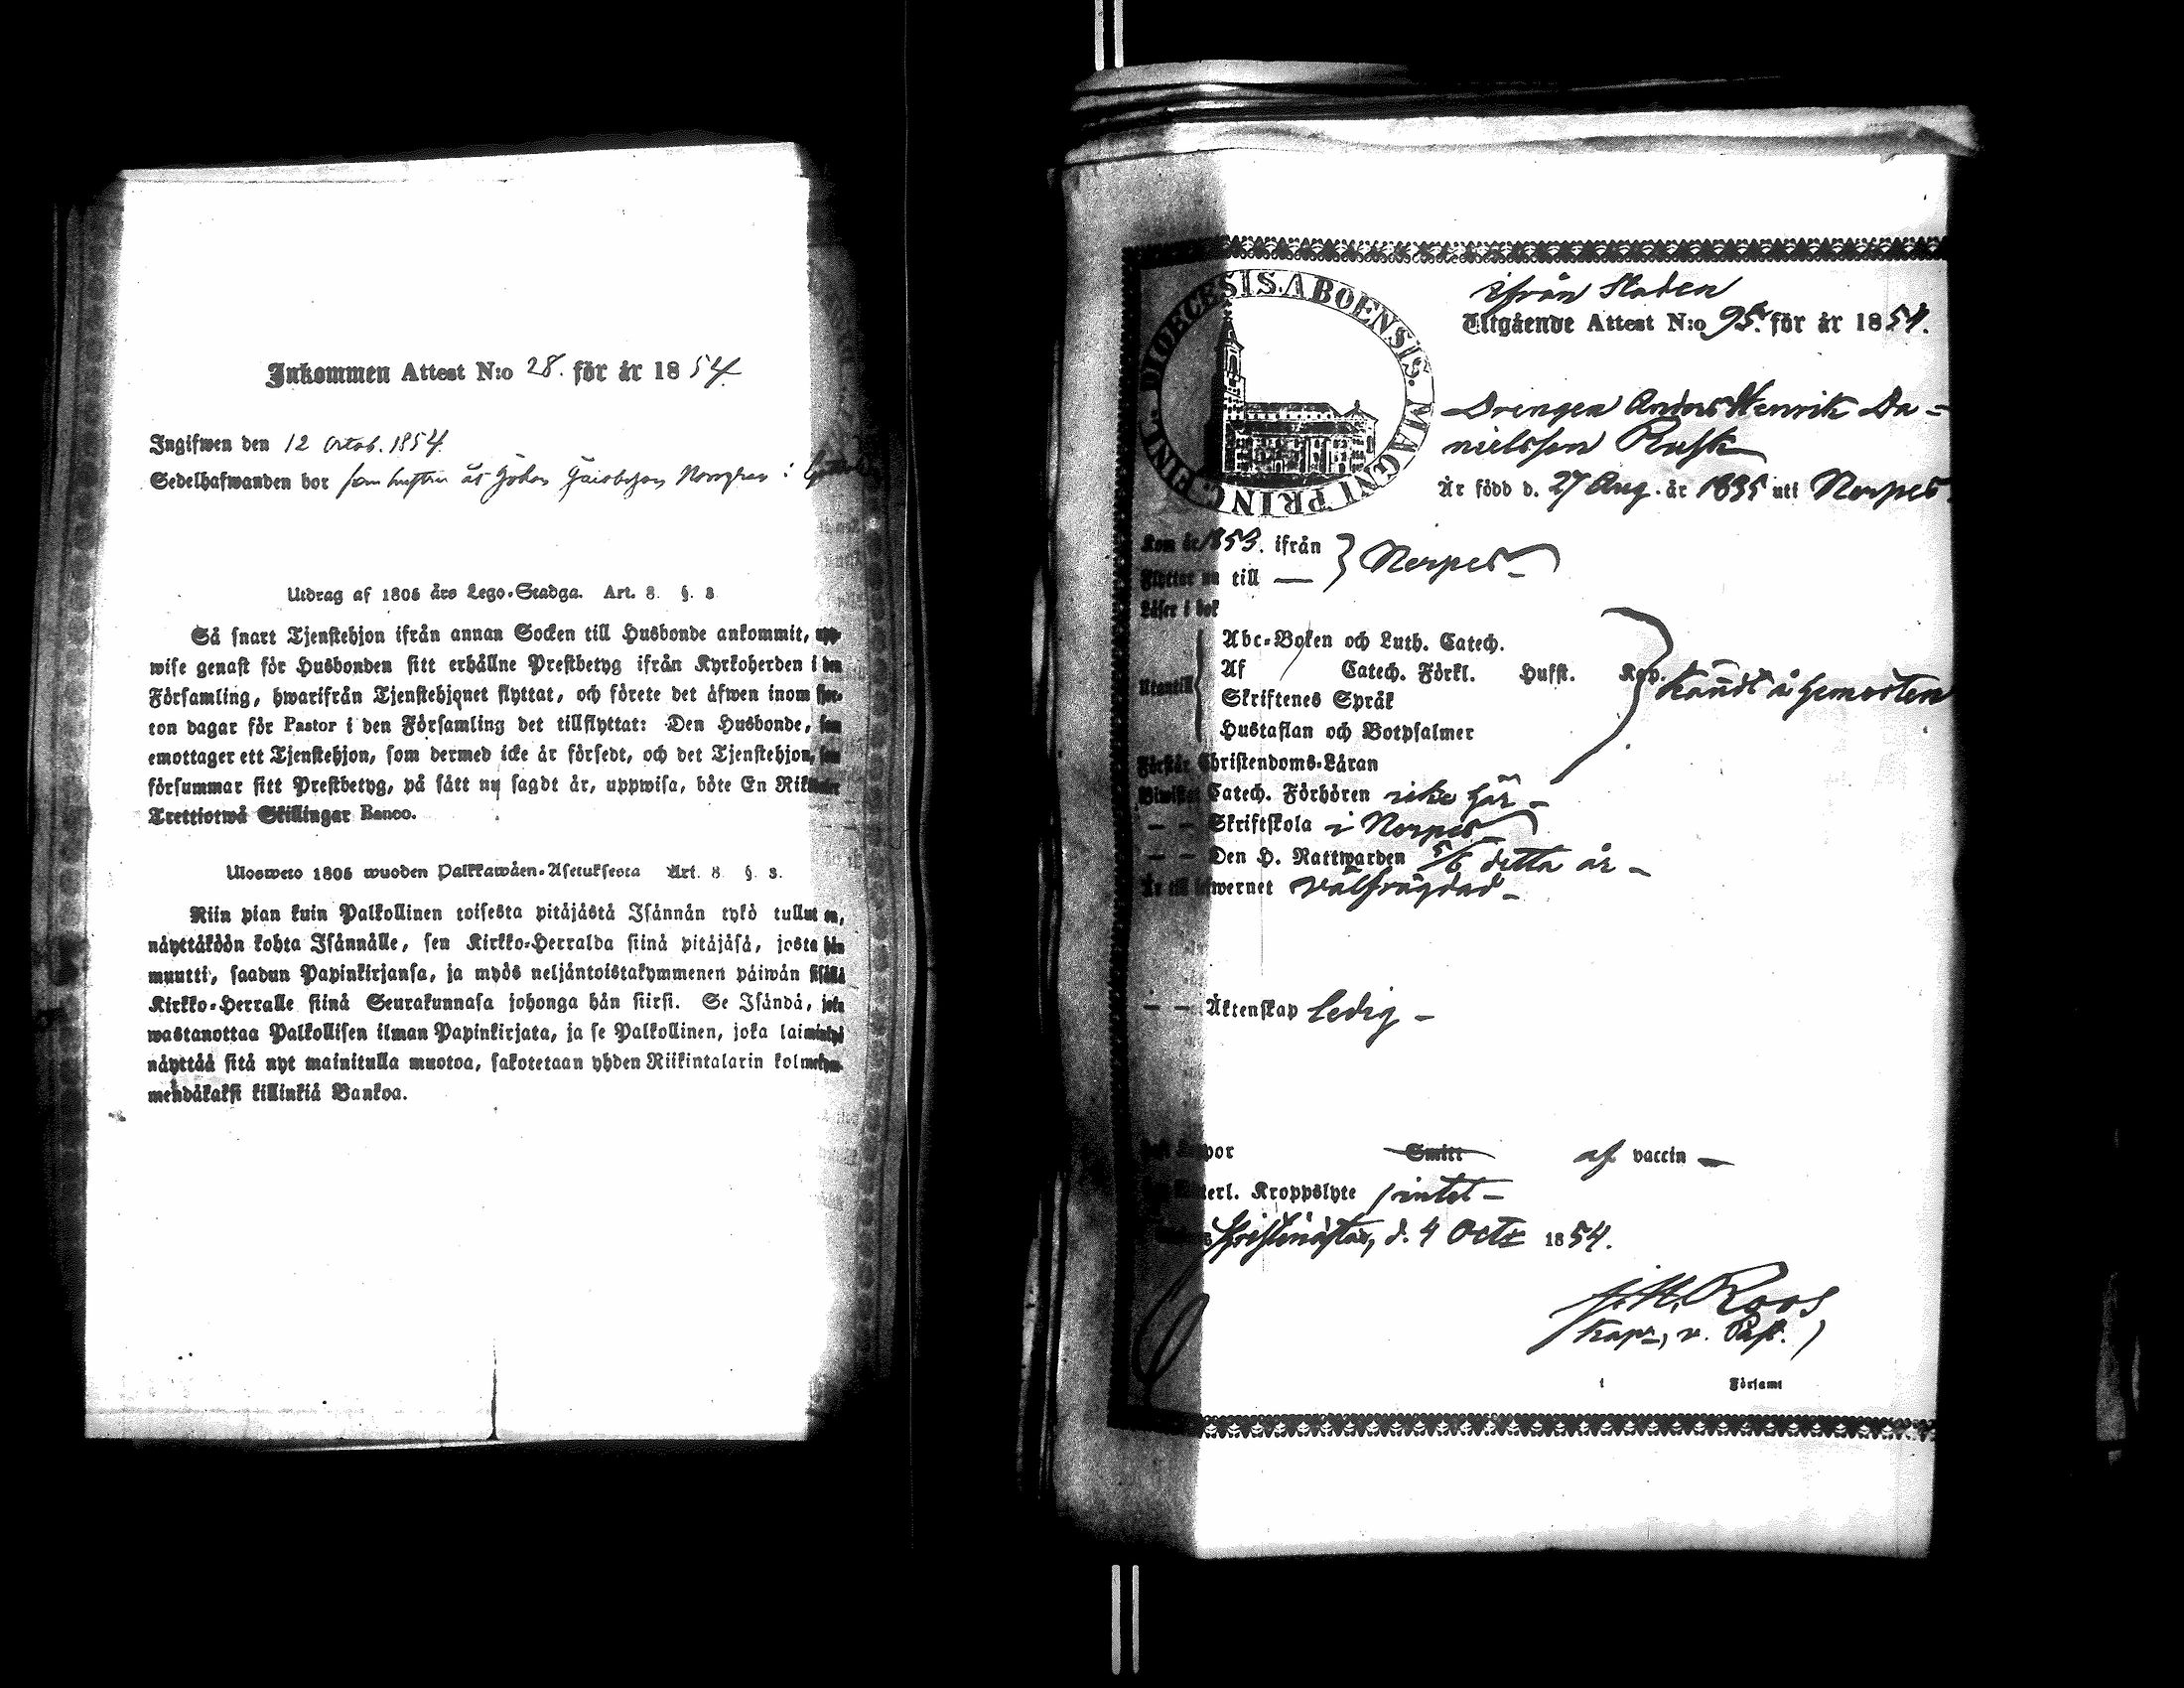 Inkommen Attest N:o 28. för år 1854.
Ingifwen den 12 Octob. 1854.
Sedelhafwanden bor
Utdrag af 1805 års Lego-Stadga. Art. 8. §. 3
Så snart Tjenstehjon ifrån annan Socken till Husbonde ankommit, upp-
wise genast för Husbonden sitt erhållne Prestbetyg ifrån Kyrkoherden i den
Församling, hwarifrån Tjenstehjonet flyttat, och förete det äfwen inom fjor-
ton dagar för Pastor i den Församling det tillflyttat: Den Husbonde, som
emottager ett Tjenstehjon, som dermed icke är försedt, och det Tjenstehjon, som
försummar sitt Prestbetyg, på sätt nu sagdt är, uppwisa, böte En Riksdaler
Trettiotwå Skillingar Banco.
Ulosweto 1805 wuoden Palkkawäen-Asetuksesta Art. 8 §. 3.
Niin pian kuin Palkollinen toisesta pitäjästä Isännän tykö tullut on,
näyttäköön kohta Isännälle, sen Kirkko-Herralda siinä pitäjäsä, josta hän
muutti, saadun Papinkirjansa, ja myös neljäntoistakymmenen päiwän sisällä
Kirkko-Herralle siinä Seurakunnasa johonga hän siirsi. Se Isändä, joka
wastanottaa Palkollisen ilman Papinkirjata, ja se Palkollinen, joka laiminlyö
näyttää sitä nyt mainitulla muotoa, sakotetaan yhden Riikintalarin kolmekym-
mendäkaksi killinkiä Bankoa.
DIOECESIS. ABOENSIS. MAGNI PRINC. FINL.
ifrån Staden
Utgående Attest N:o 95. för år 1854.
Drengen Anders Henrik Da-
nielsson Rusk
Är född d. 27 Aug. år 1835 uti Nerpes.
Kom år 1853. ifrån } Nerpes
Flyttar nu till —
Läser i bok
Abc-Boken och Luth. Catech.
Utantill Af Catech. Förkl. Husst. Kap.
Skriftenes Språk
Hustaflan och Botpsalmer
Förstår Christendoms-Läran
Biwistat Catech. Förhören icke här –
— — Skriftskola i Nerpes
— — Den H. Nattwarden 5/6 detta år –
Är till lefwernet välfrägdad –
— — Äktenskap ledig –
Haft Koppor Smitt af vaccin —
Kroppslyte intet –
Christinæstad, d. 4 Octr 1854.
Roos
Kapn, v. Past.
i Församl